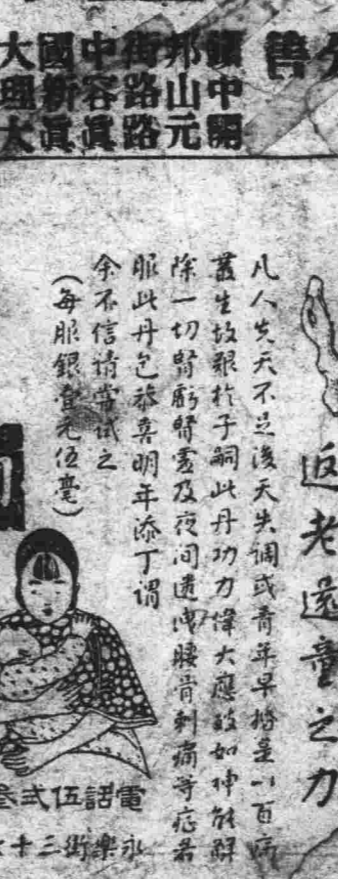 善
中開
邦山元
街路路
中容眞
國新眞
大理大
返老還童之力
凡人先天不足後天失調或青年早婚是以百病
叢生故艱於子嗣此丹功力偉大應效如神能解
除一切腎虧腎虛及夜間遺洩腰骨刺痛等症若
服此丹包恭喜明年添丁謂
余不信請嘗試之
(每服銀壹元伍毫)
電話伍弍
永樂街三十